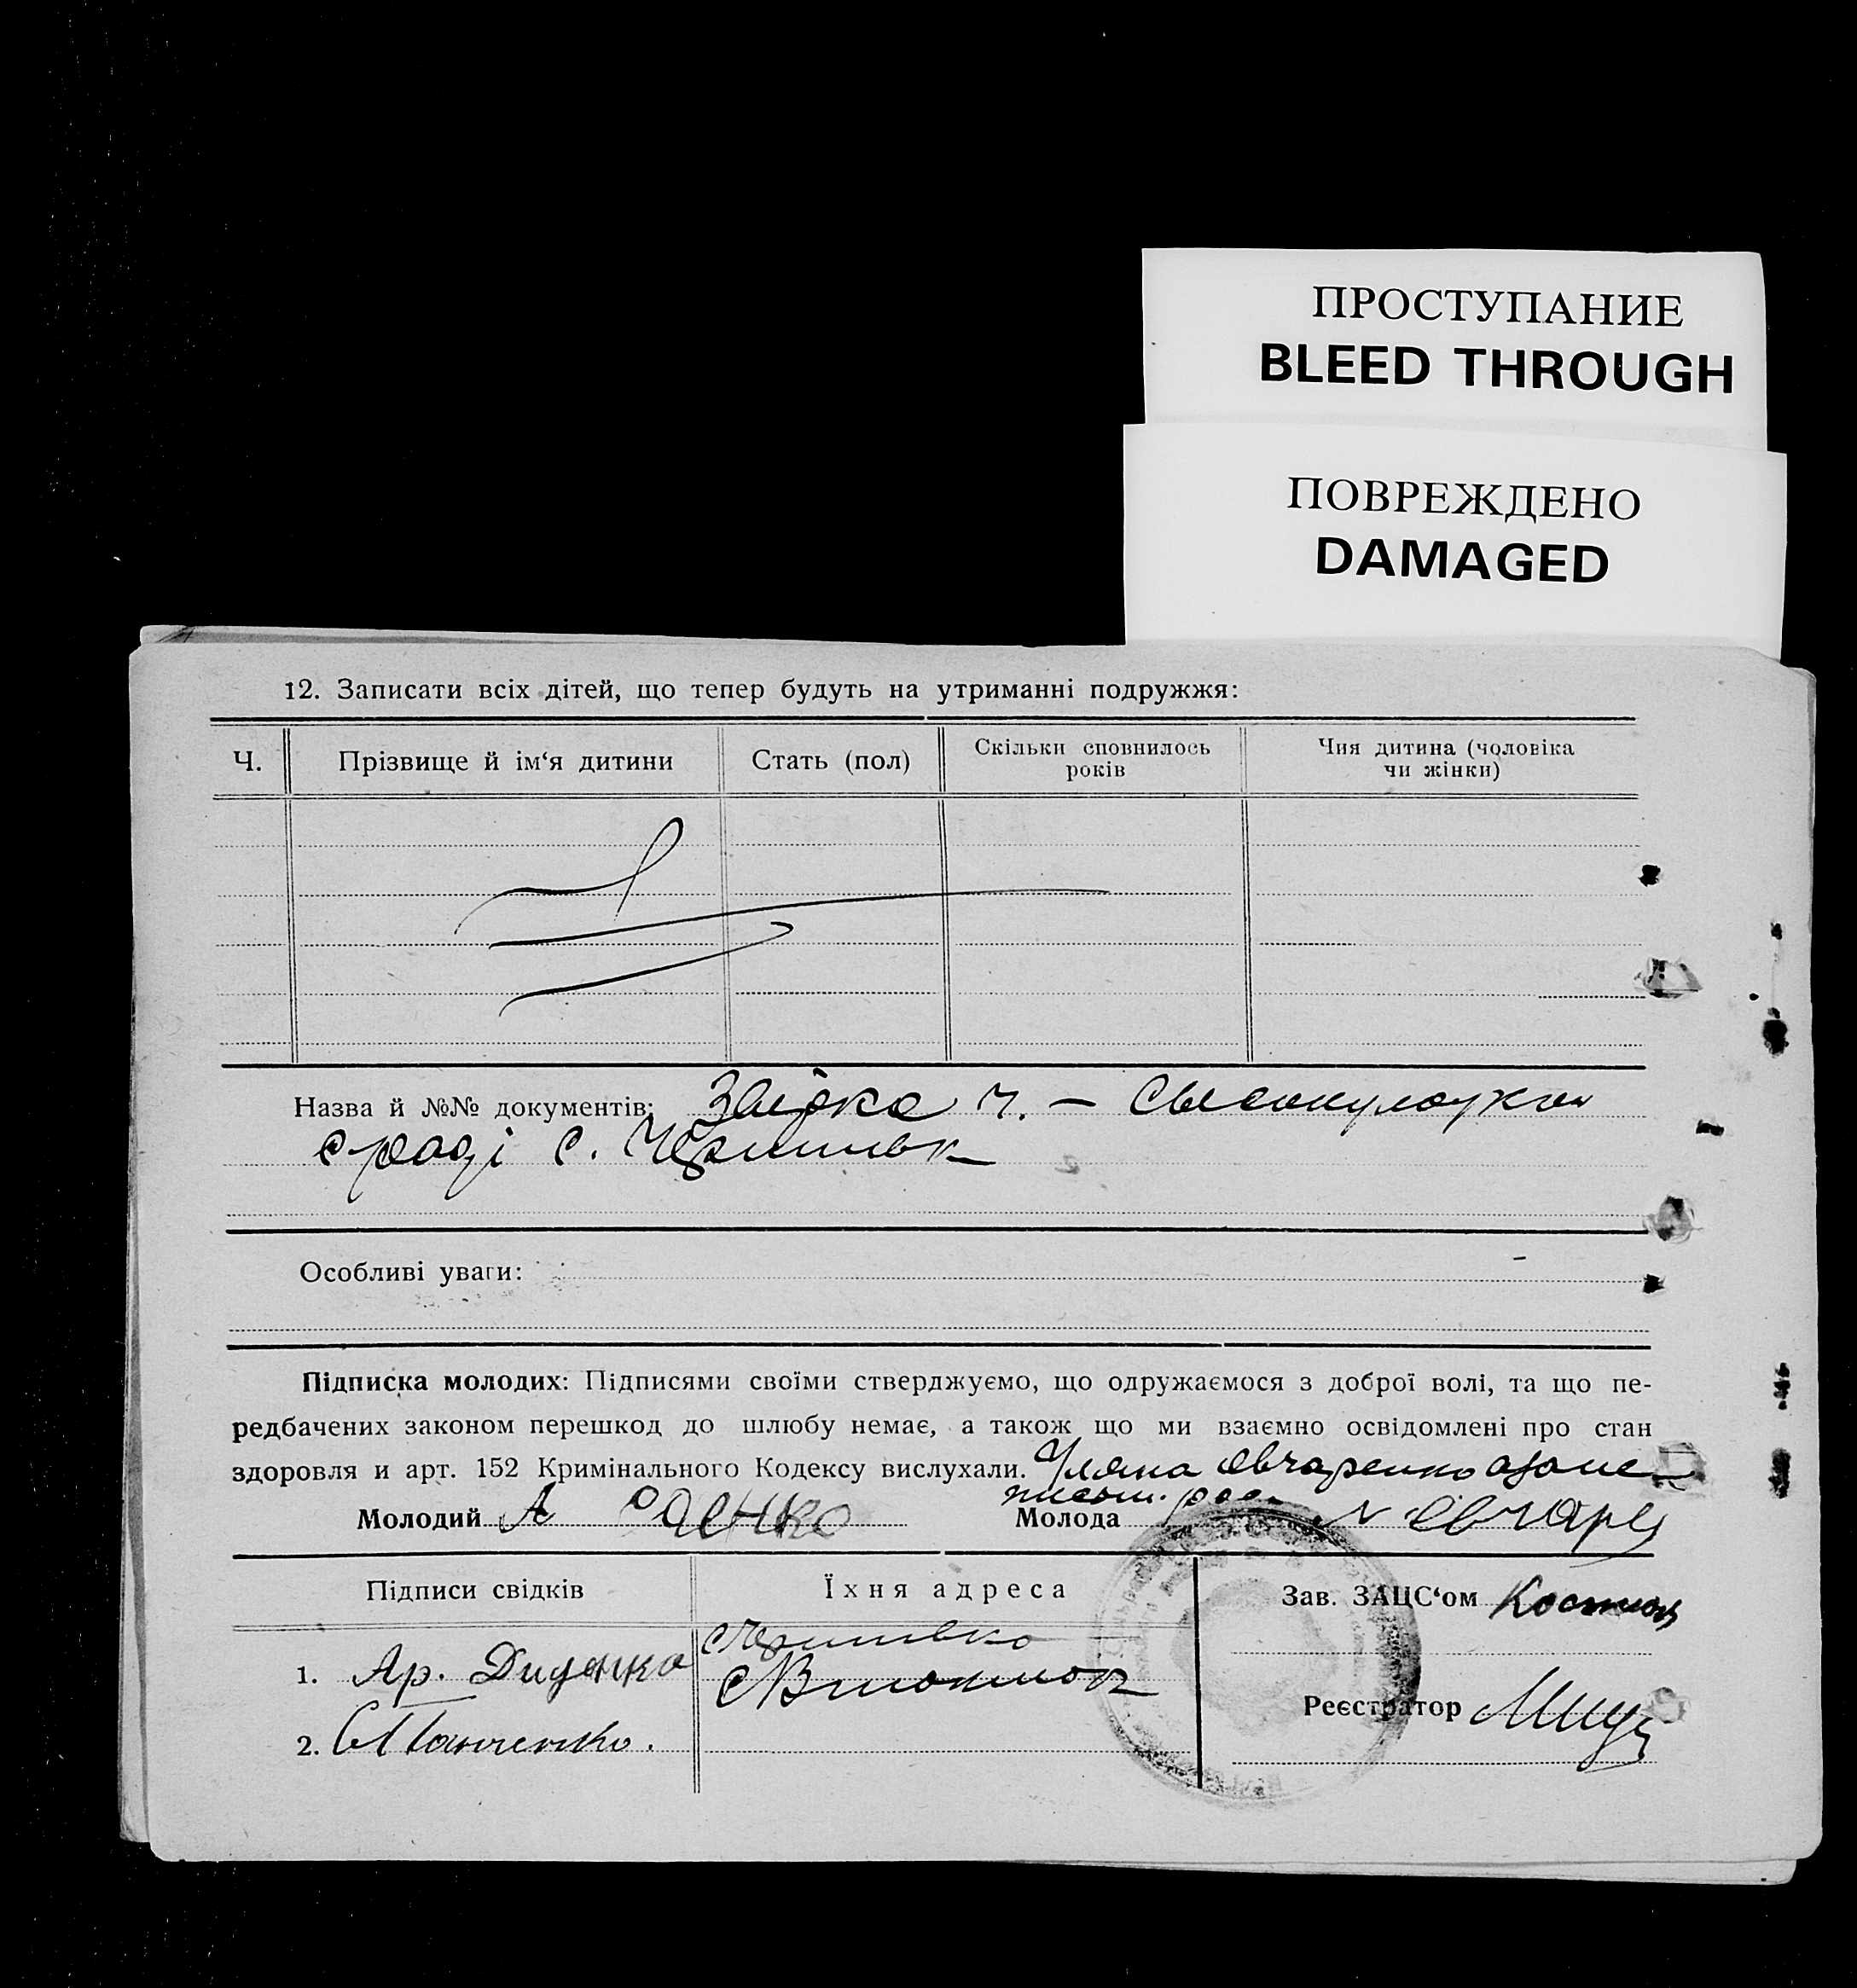 ПРОСТУПАНИЕ
BLEED THROUGH
ПОВРЕЖДЕНО
DAMAGED
12. Записати всіх дітей, що тепер будуть на утриманні подружжя:
Ч.
Прізвище й ім‘я дитини
Стать (пол)
Скільки сповнилось
років
Чия дитина (чоловіка
чи жінки)
Назва й №№ документів: ч. —
с. 
Особливі уваги:
Підписка молодих: Підписями своїми стверджуємо, що одружаємося з доброї волі, та що пе-
редбачених законом перешкод до шлюбу немає, а також що ми взаємно освідомлені про стан
здоровля и арт. 152 Кримінального Кодексу вислухали. Уляна Овчаренко
Молодий А
Молода
Підписи свідків
Їхня адреса
Зав. ЗАЦС‘ом
1. Яр. Диденко
Реєстратор
2. Панченко.